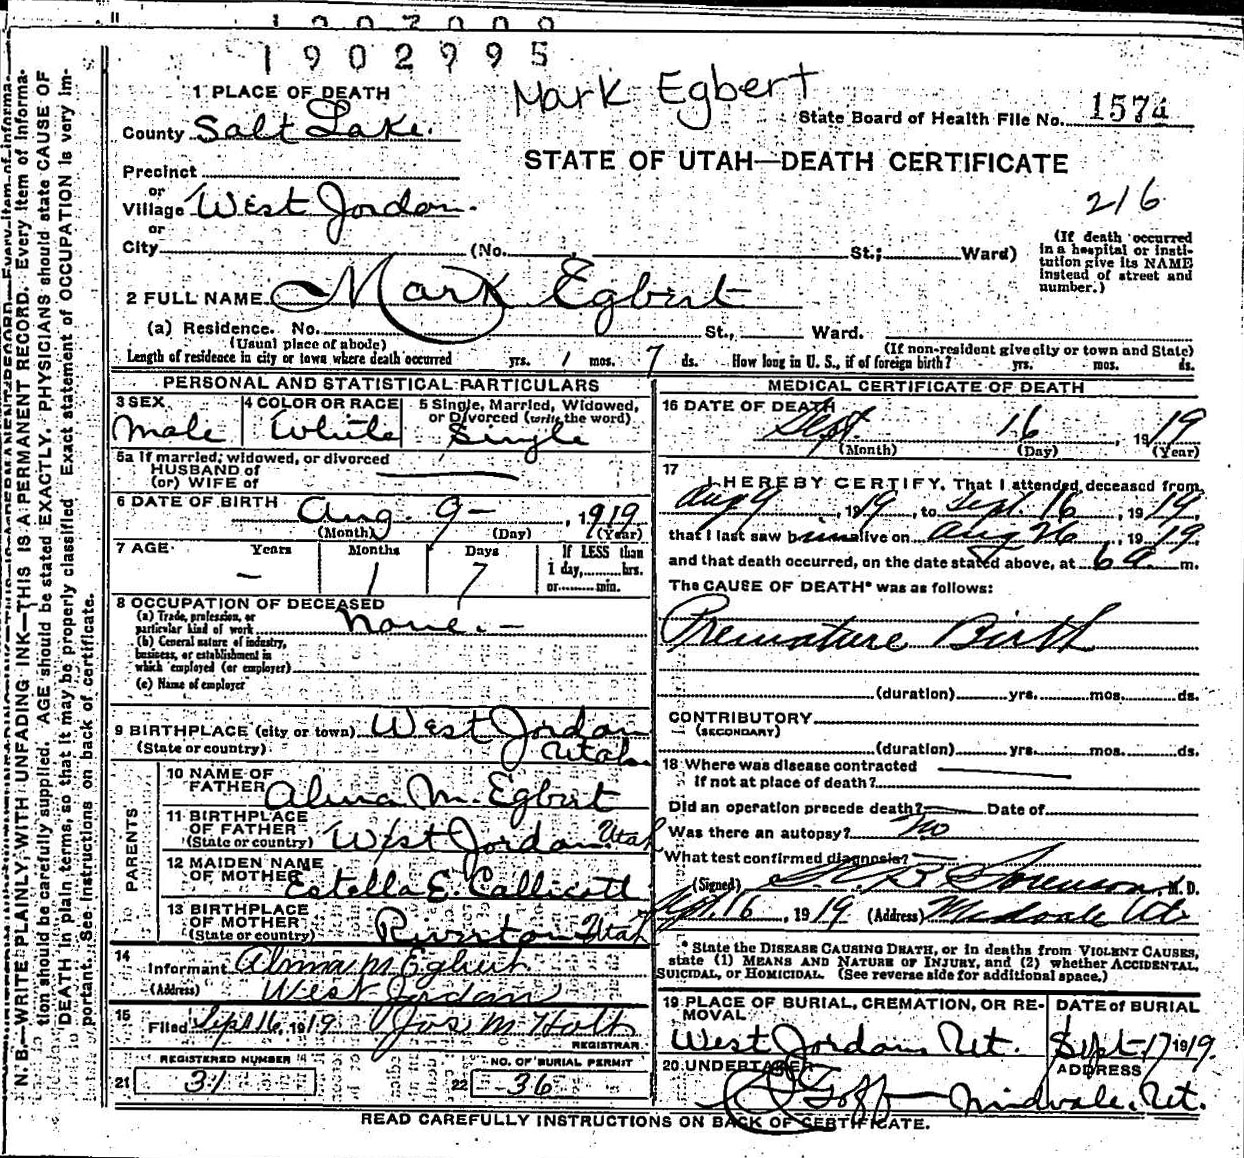 1902995
Mark Egbert
1 PLACE OF DEATH
State Board of Health File No. 1574
County Salt Lake.
STATE OF UTAH—DEATH CERTIFICATE
Precinct
or
Village West Jordan.
216
or
City (No. St.; Ward)
(If death occurred in a hospital or insti-
tution give its NAME
instead of street and
number.)
2 FULL NAME Mark Egbert
(a) Residence. No. St., Ward.
(Usual place of abode)
(If non-resident give city or town and State)
Length of residence in city or town where death occurred yrs. 1 mos. 7 ds. How long in U. S., if of foreign birth? yrs. mos. ds.
PERSONAL AND STATISTICAL PARTICULARS
3 SEX
Male
4 COLOR OR RACE
White
5 Single, Married, Widowed,
or Divorced (write the word)
Single
5a If married, widowed, or divorced
HUSBAND of
(or) WIFE of
6 DATE OF BIRTH Aug. 9- , 1919
(Month) (Day) (Year)
7 AGE Years Months Days If LESS than
– 1 7 1 day, hrs.
or min.
8 OCCUPATION OF DECEASED
(a) Trade, profession, or
particular kind of work none. –
(b) General nature of industry,
business, or establishment in
which employed (or employer)
(c) Name of employer
9 BIRTHPLACE (city or town) West Jordan
(State or country) Utah
PARENTS
10 NAME OF
FATHER Alma M. Egbert
11 BIRTHPLACE
OF FATHER
(State or country) West Jordan Utah
12 MAIDEN NAME
OF MOTHER Estella E. Callicott
13 BIRTHPLACE
OF MOTHER
(State or country) Riverton Utah
14
Informant Alma M Egbert
(Address) West Jordan
15
Filed Sept 16, 1919 Jos M Holt
REGISTRAR
REGISTERED NUMBER
21 31
NO. OF BURIAL PERMIT
22 36
MEDICAL CERTIFICATE OF DEATH
16 DATE OF DEATH
Sept. 16, 1919
(Month) (Day) (Year)
17
I HEREBY CERTIFY, That I attended deceased from
Aug 9, 1919, to Sept. 16, 1919,
that I last saw him alive on Aug 26, 1919
and that death occurred, on the date stated above, at 6 a m.
The CAUSE OF DEATH* was as follows:
Premature Birth
(duration) yrs. mos. ds.
CONTRIBUTORY
(SECONDARY)
(duration) yrs. mos. ds.
18 Where was disease contracted
if not at place of death?
Did an operation precede death? Date of
Was there an autopsy? No
What test confirmed diagnosis?
(Signed) Sorenson, M. D.
Sept. 16, 1919 (Address) Midvale Ut.
* State the DISEASE CAUSING DEATH, or in deaths from VIOLENT CAUSES,
state (1) MEANS AND NATURE OF INJURY, and (2) whether ACCIDENTAL,
SUICIDAL, or HOMICIDAL. (See reverse side for additional space.)
19 PLACE OF BURIAL, CREMATION, OR RE-
MOVAL
West Jordan Ut.
DATE of BURIAL
Sept-17 1919.
20 UNDERTAKER
Goff
ADDRESS
Midvale, Ut.
READ CAREFULLY INSTRUCTIONS ON BACK OF CERTIFICATE.
N. B.—WRITE PLAINLY, WITH UNFADING INK—THIS IS A PERMANENT RECORD. Every item of informa-
tion should be carefully supplied. AGE should be stated EXACTLY. PHYSICIANS should state CAUSE OF
DEATH in plain terms, so that it may be properly classified. Exact statement of OCCUPATION is very im-
portant. See instructions on back of certificate.